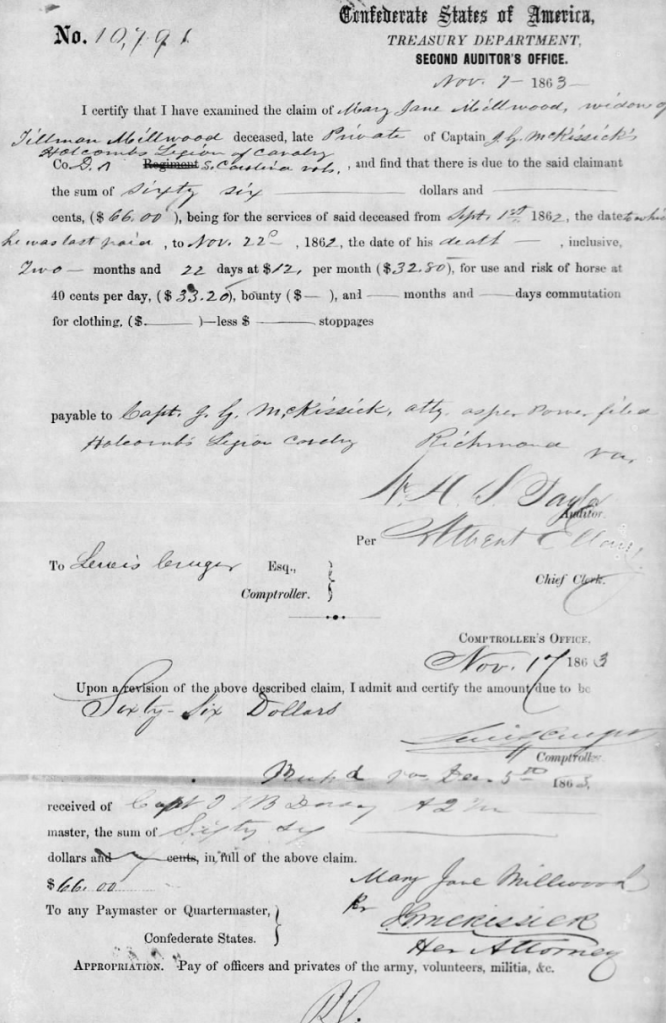 Confederate States of America,
No. 10,791
TREASURY DEPARTMENT,
SECOND AUDITOR'S OFFICE.
Nov. 7 - 1863 -
I certify that I have examined the claim of Mary Jane Millwood, widow of
Tillman Millwood deceased, late Private of Captain J. G. McKissick's
Holcombs Legion of Cavalry
Co. D. Regiment S. Carolina vols., and find that there is due to the said claimant
the sum of Sixty six dollars and
cents, ($66.00), being for the services of said deceased from Sept. 1st 1862, the date to which
he was last paid, to Nov. 22d, 1862, the date of his death -, inclusive,
Two - months and 22 days at $12, per month ($32.80), for use and risk of horse at
40 cents per day, ($33.20), bounty ($ - ), and - months and - days commutation
for clothing, ($ )—less $ stoppages
payable to Capt. J. G. McKissick, atty. as per Power filed
Holcomb's Legion Cavalry Richmond Va.
W. H. S. Taylor
Auditor.
Per
To Lewis Cruger Esq.,
Comptroller.
Chief Clerk.
COMPTROLLER'S OFFICE,
Nov. 17 1863
Upon a revision of the above described claim, I admit and certify the amount due to be
Sixty-Six Dollars
Lewis Cruger
Comptroller.
Va. Dec. 5th 1863,
received of Capt
master, the sum of Sixty six
dollars and cents, in full of the above claim.
$66.00
Mary Jane Millwood
Pr
To any Paymaster or Quartermaster,
J G McKISSICK
Confederate States.
Her Attorney
APPROPRIATION. Pay of officers and privates of the army, volunteers, militia, &c.